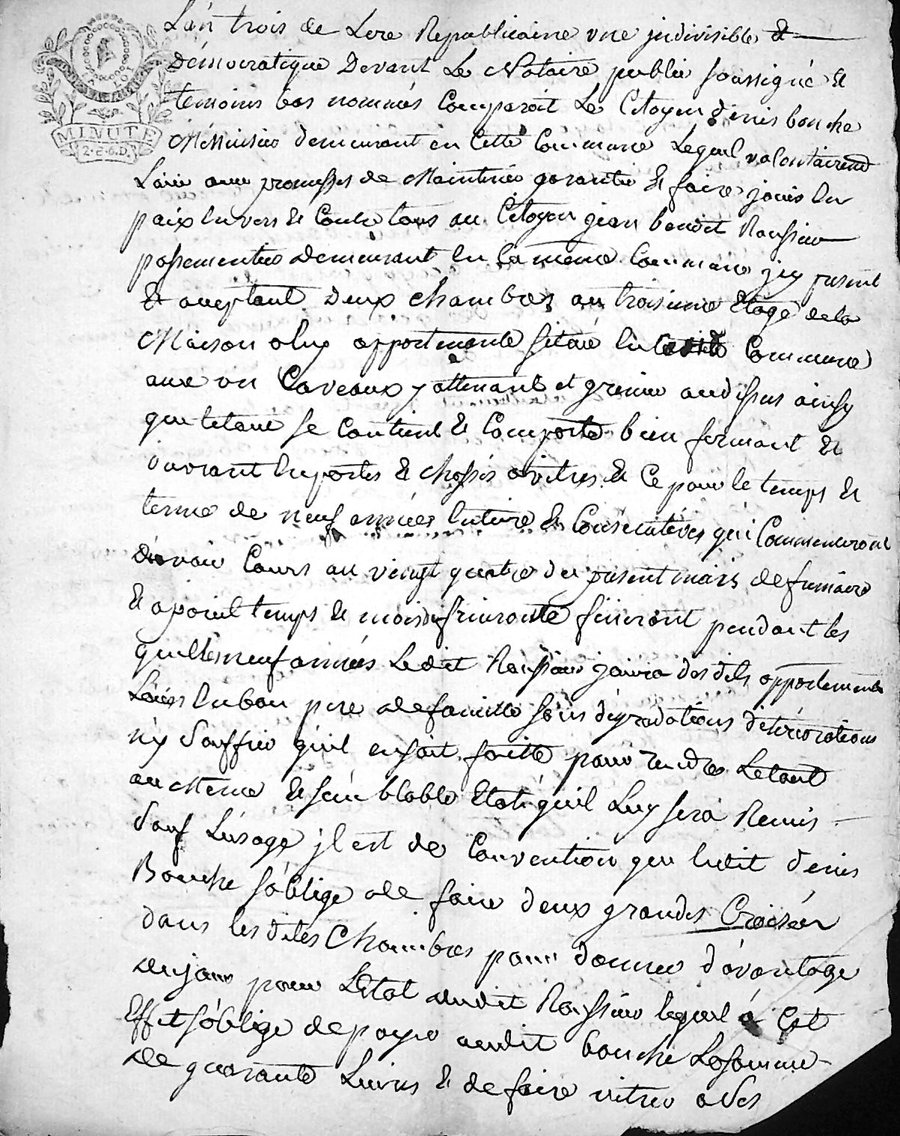 MINUTE
2.S.6.D.
L'an trois de Lere Republicaine une jndivisible &
démocratique Devant Le Notaire public soussigné &
temoins bas nommés Comparoit Le Citoyen denis bouche
Menuisier demeurant en Cette Commune Lequel volontairemt
Laisse avec promesses de Maintenir garantir & faire jouir en
paix Envers & Contre tous au Citoyen jean benoit Roussier
passementier demeurant en la même Commune jcy present
& aceptant deux chambres au troisieme Etage de la
Maison a luy appartenante située en Commune
avec un Caveaux y attenant et grenier audissus ainsy
que letout se Contient & Comporte bien fermant &
ouvrant en portes & chassis a vitres & Ce pour le temps &
terme de neuf années Entiere & Consecutives qui Commenceront
davoir Cours au vingt quatre du present mois de frimaire
& a pareil temps & mois finiront pendant les
quelles neuf années Ledit Roussier jouira desdits appartements
Laissés en bon pere de famille sans dégradations détériorations
ny Souffrir qu'il en soit faitte pour rendre Letout
au Meme & semblable Etat qu'il Luy sera Remis
Sauf Lusage jl est de Convention que ledit denis
Bouche s'oblige de faire deux grandes Croisées
dans lesdites Chambres pour donner d'avantage
de jour pour Letat dudit Roussier lequel à Cet
Effet s'oblige de payer audit bouche La somme
de quarante Livres & de faire vitrer a ses